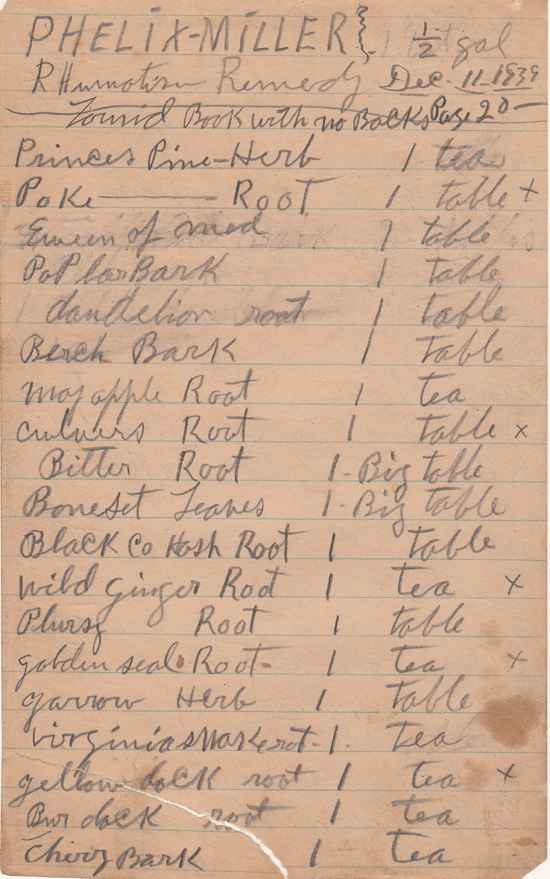 PHELIX-MILLER} 1/2 gal
RHumotism Remedy Dec-11-1939
Found Book with no Backs Page 20-
Princes Pine-Herb 1 tea
Poke Root 1 table +
Queen of med 1 table
PoPlar Bark 1 table
dandelion root 1 table
Berch Bark 1 table
may apple Root 1 tea
culvers Root 1 table x
Bitter Root 1-Big table
Boneset Leaves 1-Big table
Black Co Hosh Root 1 table
wild ginger Root 1 tea x
Plursy Root 1 table
golden seal Root- 1 tea x
yarrow Herb 1 table
virginia snake root-1. tea
yellow dock root 1 tea x
Bur dock root 1 tea
Cherry Bark 1 tea